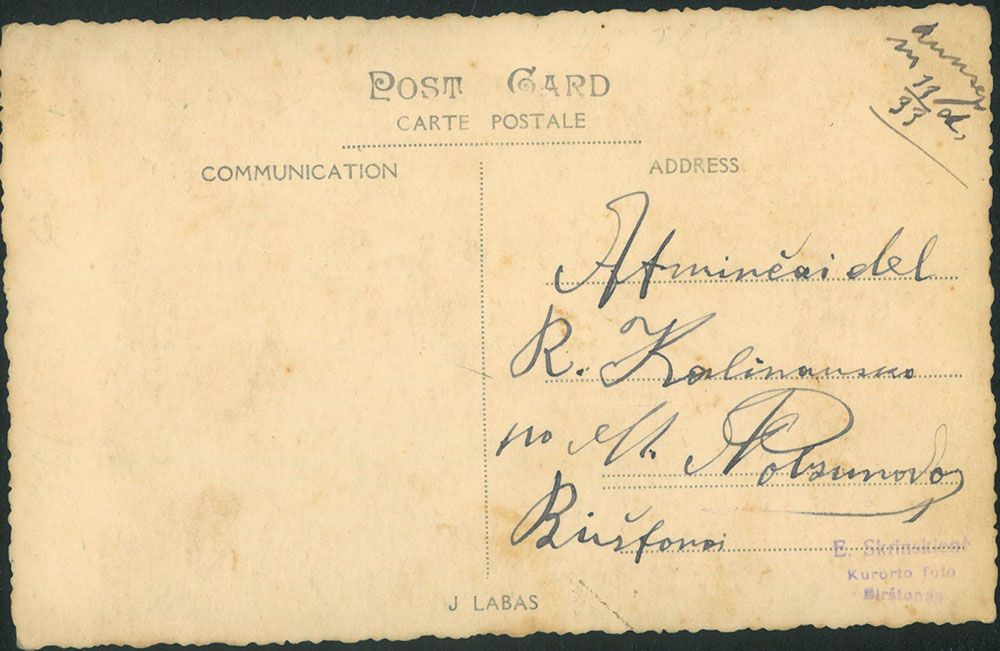 POST CARD
CARTE POSTALE
COMMUNICATION
ADDRESS
11/33
Atminčai del
R. Kalinausko
nuo M.
Birštonai
E. Skrinskienė
Kurorto foto
Birštonas
J LABAS